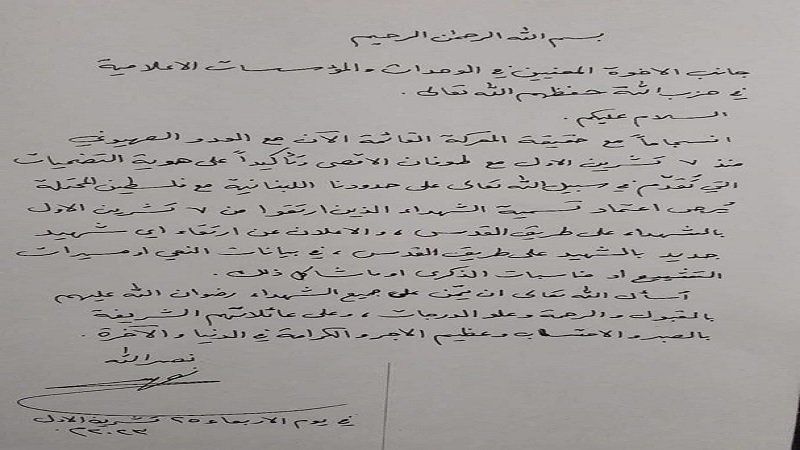 بسم الله الرحمن الرحيم
جانب الاخوة المعنيين في الوحدات والمؤسسات الاعلامية
في حزب الله حفظهم الله تعالى .
السلام عليكم .
انسجاماً مع حقيقة المعركة القائمة الآن مع العدو الصهيوني
منذ ٧ تشرين الاول مع طوفان الاقصى وتأكيداً على هوية التضحيات
التي تُقدّم في سبيل الله تعالى على حدودنا اللبنانية مع فلسطين المحتلة
يُرجى اعتماد تسمية الشهداء الذين ارتقوا من ٧ تشرين الاول
بالشهداء على طريق القدس ، والاعلان عن ارتقاء اي شهيد
جديد بالشهيد على طريق القدس ، في بيانات النعي او مسيرات
التشييع او مناسبات الذكرى او ما شاكل ذلك .
أسأل الله تعالى ان يمّن على جميع الشهداء رضوان الله عليهم
بالقبول والرحمة وعلو الدرجات ، وعلى عائلاتهم الشريفة
بالصبر والاحتساب وعظيم الاجر والكرامة في الدنيا والآخرة .
نصر الله
في يوم الاربعاء ٢٥ تشرين الاول
٢٠٢٣ م